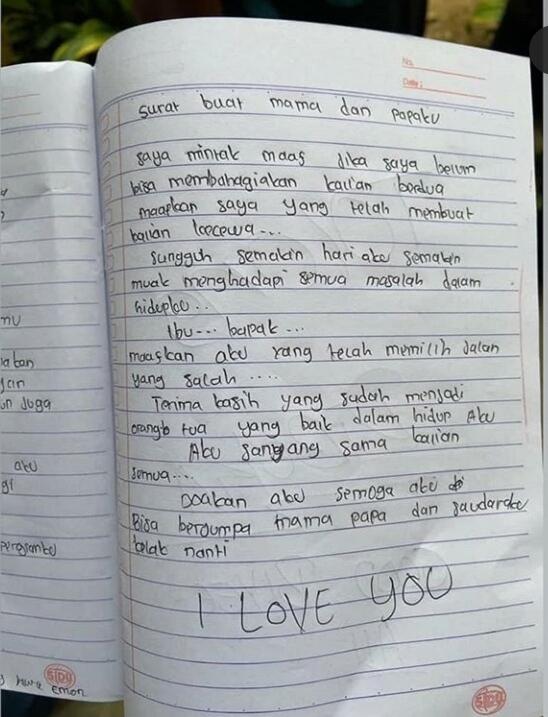 No.
Date :
surat buat mama dan papaku
saya mintak maas jika saya belum
bisa membahagiakan kalian berdua
maapkan saya yang telah membuat
kalian kecewa...
sungguh semakin hari aku semakin
muak menghadapi semua masalah dalam
hidupku..
Ibu... bapak...
maaskan aku yang telah memilih jalan
yang salah....
Terima kasih yang sudah menjadi
orangb tua yang baik dalam hidup Aku
Aku sangyang sama kalian
semua....
Doakan aku semoga aku
Bisa berjumpa mama papa dan saudaraku
kelak nanti
I LOVE YOU
SIDU
mu
akan
jan
un juga
aku
gi
pergianku
SIDU
emon